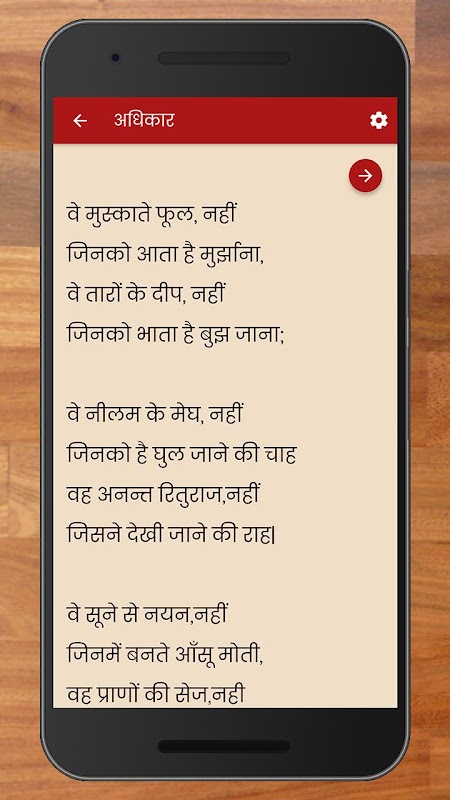 अधिकार
वे मुस्काते फूल, नहीं
जिनको आता है मुर्झाना,
वे तारों के दीप, नहीं
जिनको भाता है बुझ जाना;
वे नीलम के मेघ, नहीं
जिनको है घुल जाने की चाह
वह अनन्त रितुराज,नहीं
जिसने देखी जाने की राह|
वे सूने से नयन,नहीं
जिनमें बनते आँसू मोती,
वह प्राणों की सेज,नही